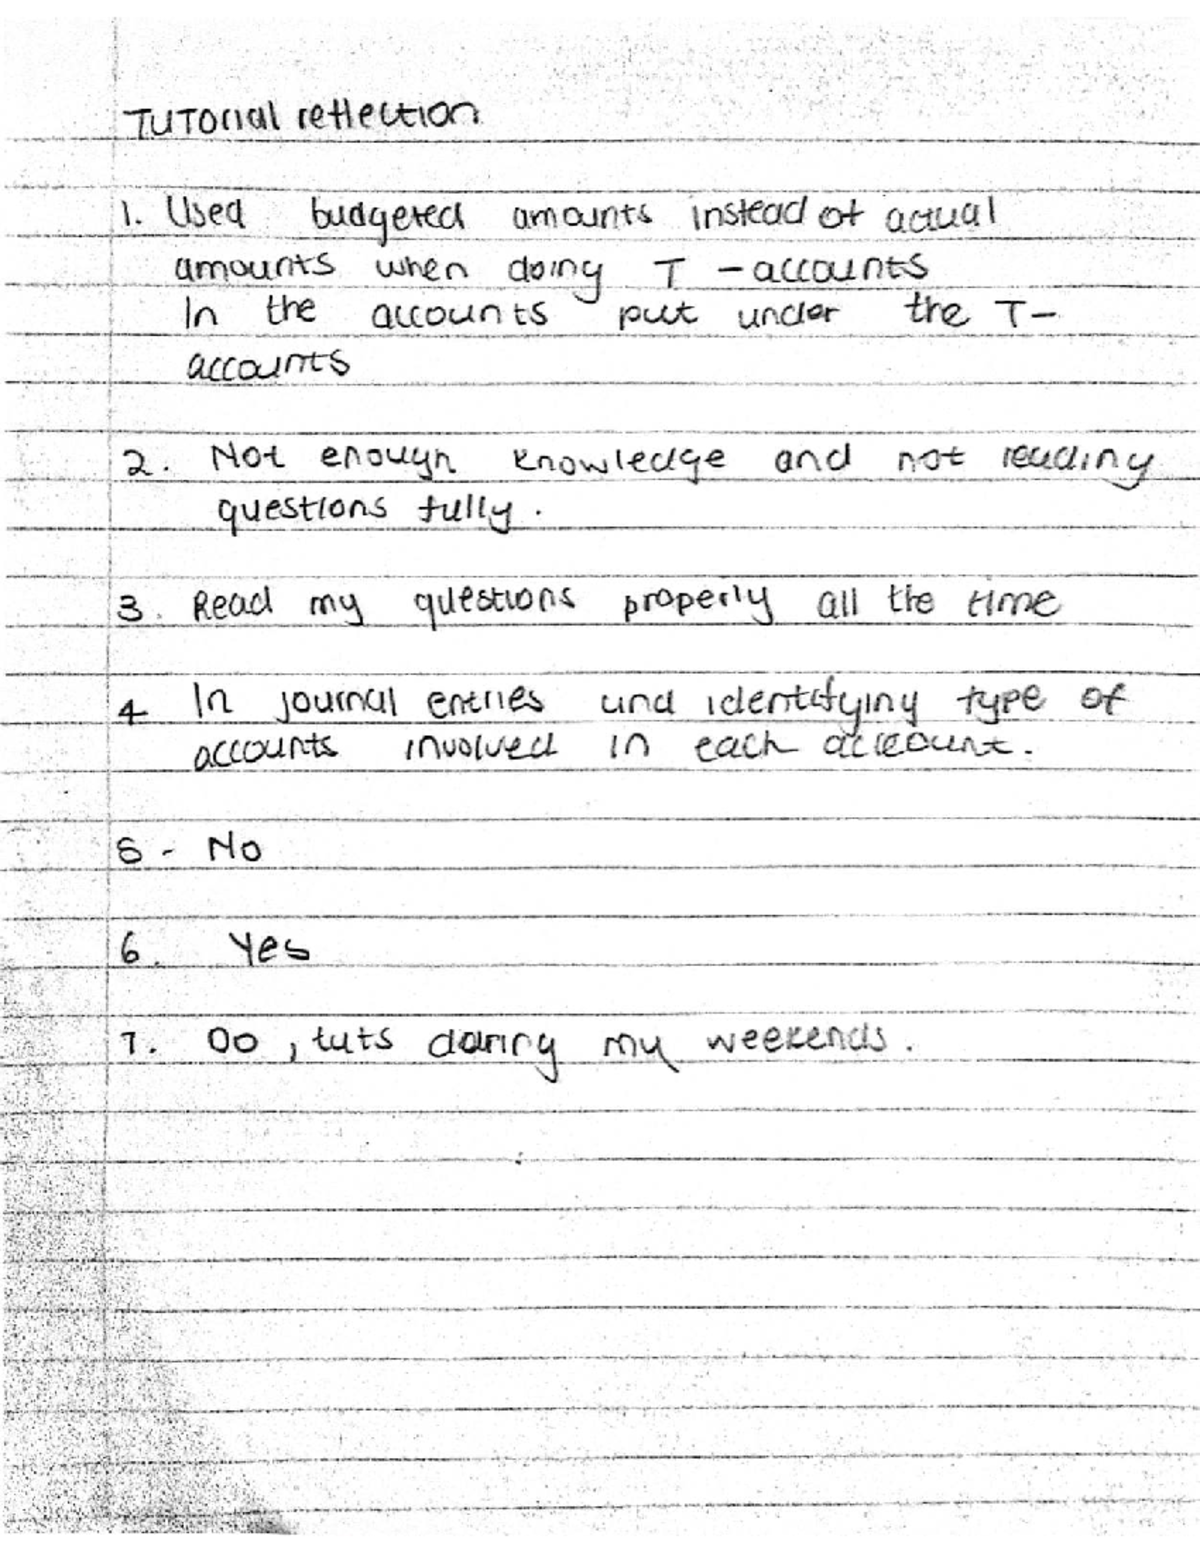 Tutorial reflection
1. Used budgeted amounts instead of actual
amounts when doing T - accounts
In the accounts put under the T-
accounts
2. Not enough knowledge and not reading
questions fully.
3. Read my questions properly all the time
4 In journal entries and identifying type of
accounts involved in each account.
5 - No
6. Yes
7. Do, tuts during my weekends.